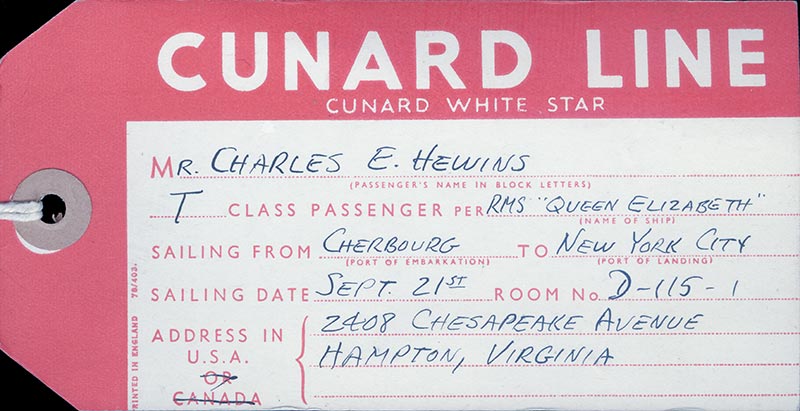 CUNARD LINE
CUNARD WHITE STAR
MR. CHARLES E. HEWINS
(PASSENGER'S NAME IN BLOCK LETTERS)
T CLASS PASSENGER PER RMS "QUEEN ELIZABETH"
(NAME OF SHIP)
SAILING FROM CHERBOURG TO NEW YORK CITY
(PORT OF EMBARKATION) (PORT OF LANDING)
SAILING DATE SEPT. 21ST ROOM No. D-115-1
ADDRESS IN 2408 CHESAPEAKE AVENUE
U.S.A. HAMPTON, VIRGINIA
OR
CANADA
PRINTED IN ENGLAND 78/403.